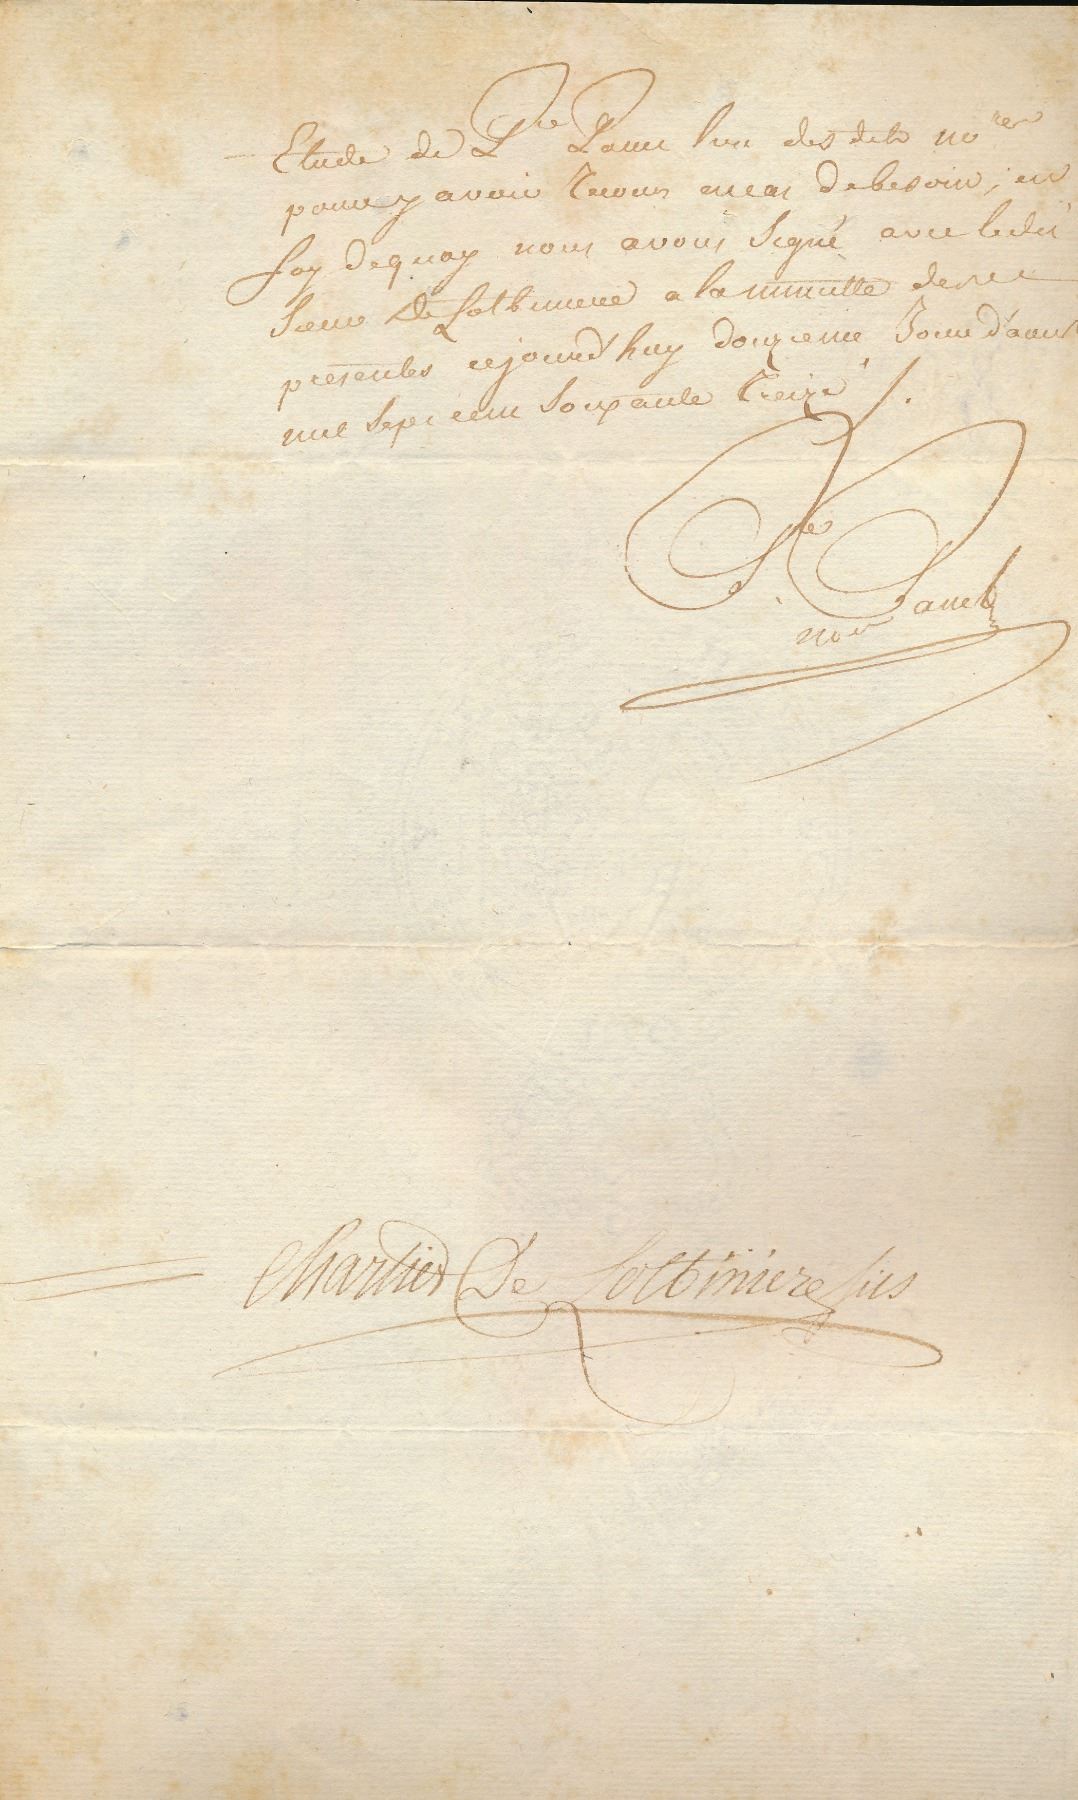 Etude de P.re Panet l'un des dits no.res
pour y avoir recours en cas de besoin; en
foy dequoy nous avons signé avec ledit
Sieur De Lotbiniere a la minutte des
presentes cejourd'huy douzieme Jour d'aout
mil sept cent soixante treize /.
P.re Panet
no.re
Chartier De Lotbiniere fils